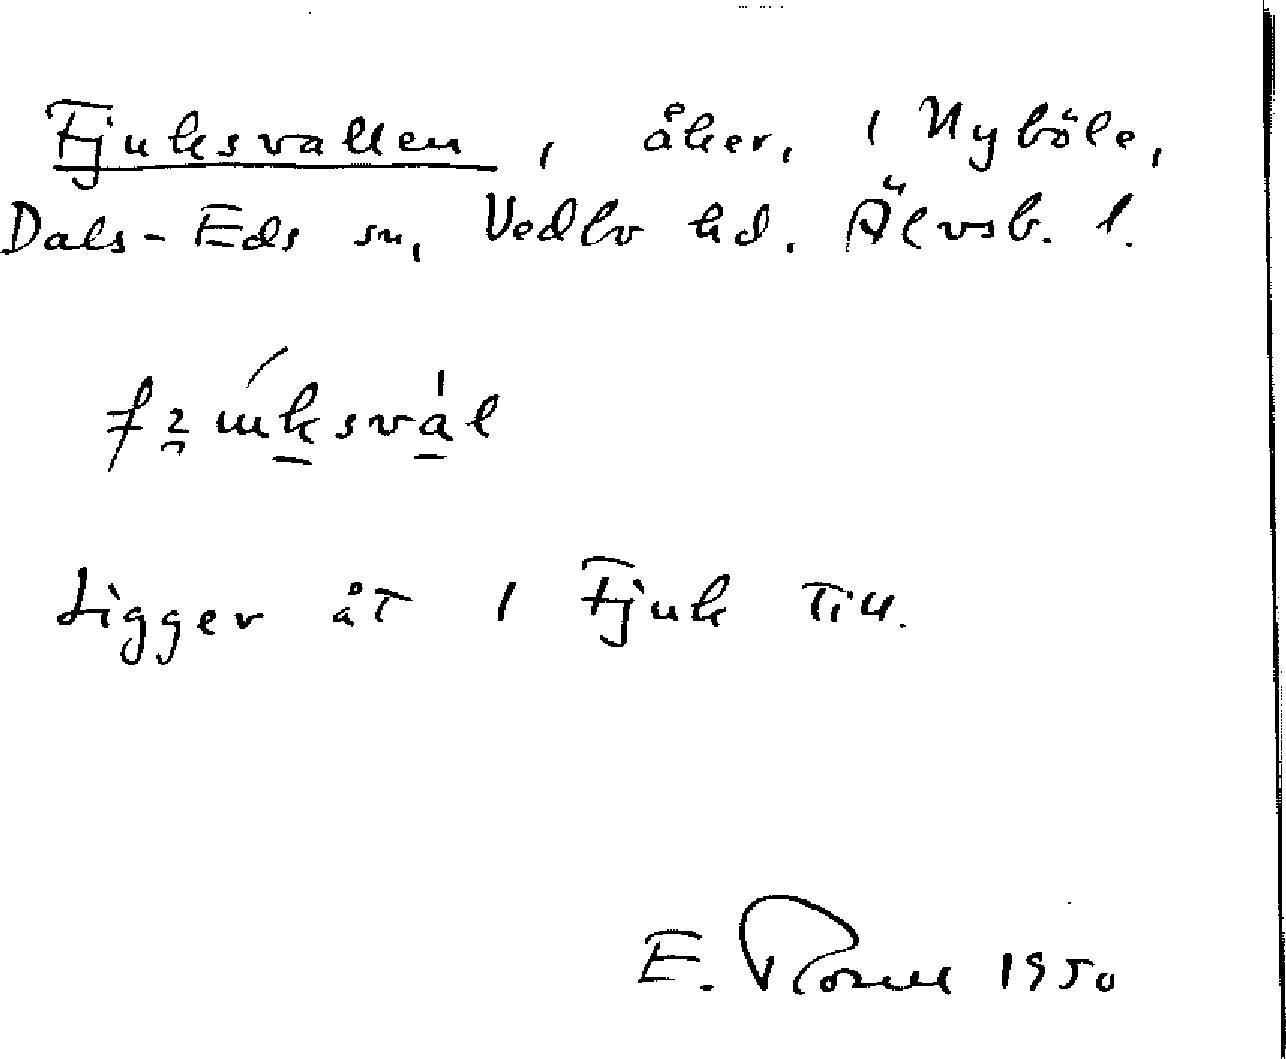 Fjuksvallen, åker, 1 Nyböle,
Dals-Eds sn, Vedbo hd. Älvsb. l.
Ligger åt 1 Fjuk till.
E. Rosell 1950